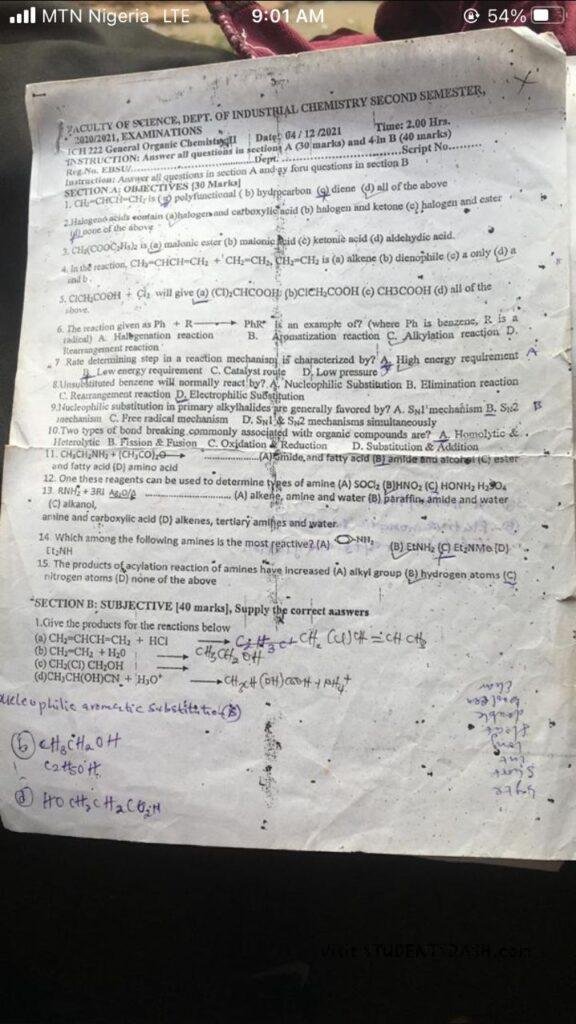 MTN Nigeria LTE 9:01 AM 54%
FACULTY OF SCIENCE, DEPT. OF INDUSTRIAL CHEMISTRY SECOND SEMESTER,
2020/2021, EXAMINATIONS
ICH 222 General Organic Chemistry II Date: 04 / 12 /2021 Time: 2.00 Hrs.
INSTRUCTION: Answer all questions in section A (30 marks) and 4 in B (40 marks)
Reg.No. EBSU/.................... Dept. .................... Script No..........
Instruction: Answer all questions in section A and any four questions in section B
SECTION A; OBJECTIVES [30 Marks]
1. CH₂=CHCH=CH₂ is (a) polyfunctional ( b) hydrocarbon (c) diene (d) all of the above
2.Halogeno acids contain (a)halogen and carboxylic acid (b) halogen and ketone (c) halogen and ester
(d)none of the above
3. CH₂(COOC₂H₅)₂ is (a) malonic ester (b) malonic acid (c) ketonic acid (d) aldehydic acid.
4. In the reaction, CH₂=CHCH=CH₂ + CH₂=CH₂, CH₂=CH₂ is (a) alkene (b) dienophile (c) a only (d) a
and b
5. ClCH₂COOH + Cl₂ will give (a) (Cl)₂CHCOOH (b)ClCH₂COOH (c) CH3COOH (d) all of the
above.
6. The reaction given as Ph + R PhR is an example of? (where Ph is benzene, R is a
radical) A. Halogenation reaction B. Aromatization reaction C. Alkylation reaction D.
Rearrangement reaction
7 Rate determining step in a reaction mechanism is characterized by? A. High energy requirement A
B. Low energy requirement C. Catalyst route D. Low pressure
8.Unsubstituted benzene will normally react by? A. Nucleophilic Substitution B. Elimination reaction
C. Rearrangement reaction D. Electrophilic Substitution
9.Nucleophilic substitution in primary alkylhalides are generally favored by? A. SN1 mechanism B. SN2 B
mechanism C. Free radical mechanism D. SN1 & SN2 mechanisms simultaneously
10.Two types of bond breaking commonly associated with organic compounds are? A. Homolytic &
Heterolytic B. Fission & Fusion C. Oxidation & Reduction D. Substitution & Addition
11. CH₃CH₂NH₂ + (CH₃CO)₂O .................... (A)amide, and fatty acid (B) amide and alcohol (C) ester
and fatty acid (D) amino acid
12. One these reagents can be used to determine types of amine (A) SOCl₂ (B)HNO₂ (C) HONH₂ H₂SO₄
13. RNH₂ + 3RI Ag₂O/Δ .................... (A) alkene, amine and water (B) paraffin, amide and water
(C) alkanol,
amine and carboxylic acid (D) alkenes, tertiary amines and water
14. Which among the following amines is the most reactive? (A) NH₂ (B) EtNH₂ (C) Et₂NMe (D)
Et₂NH
15. The products of acylation reaction of amines have increased (A) alkyl group (B) hydrogen atoms (C)
nitrogen atoms (D) none of the above
SECTION B: SUBJECTIVE [40 marks], Supply the correct answers
1.Give the products for the reactions below
(a) CH₂=CHCH=CH₂ + HCl
(b) CH₂=CH₂ + H₂0 CH₃CH₂OH
(c) CH₂(Cl) CH₂OH
(d)CH₃CH(OH)CN + H₃O⁺ CH₃CH(OH)COOH + NH₄⁺
Nucleophilic aromatic substitution (8)
(b) CH₃CH₂OH
C2H5OH
(d) HOCH₂CH₂CO₂H
Byte
Short
int
long
float
double
boolean
Char